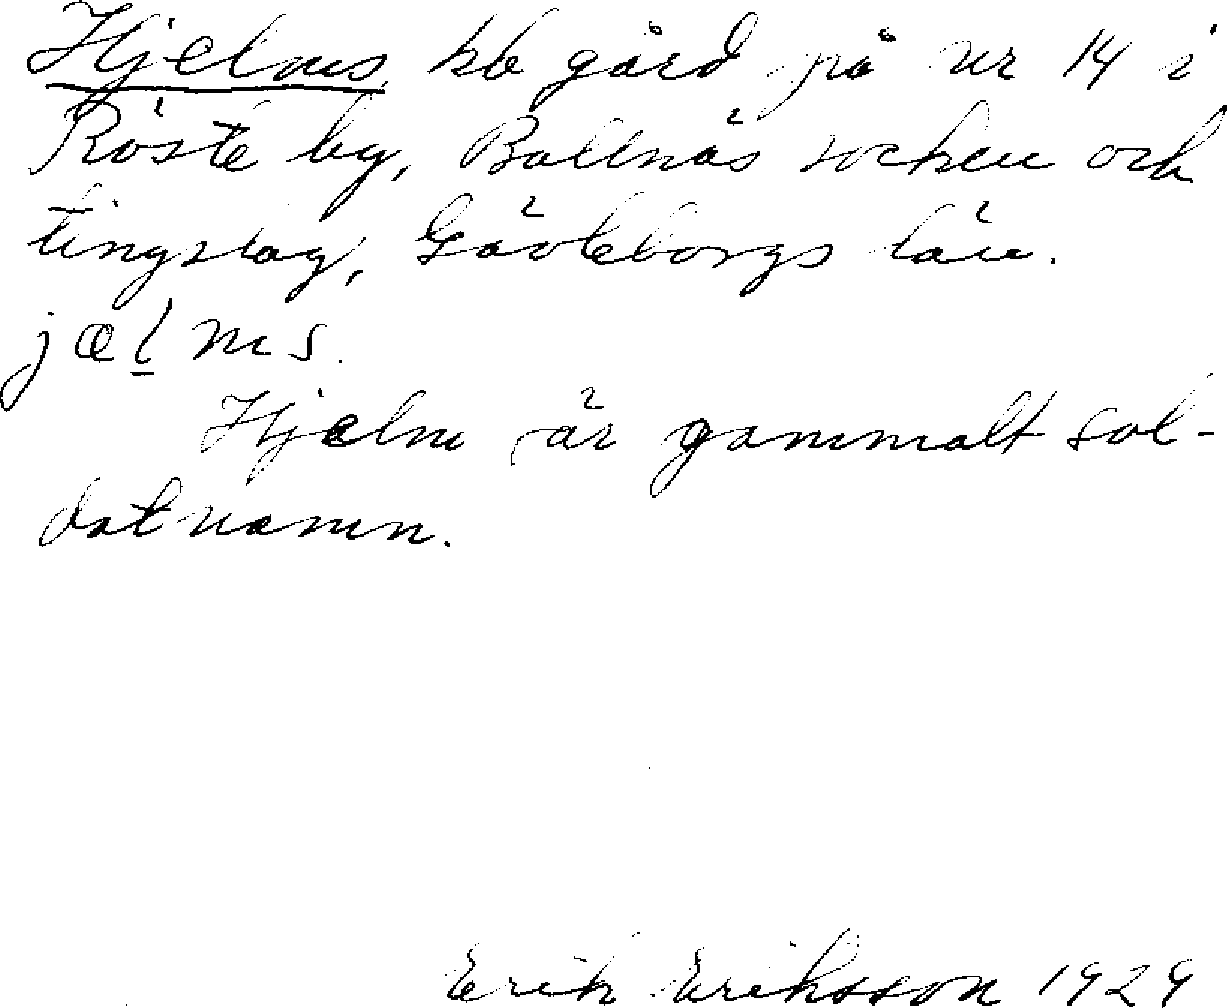 Hjelms, kb gård på nr 14 i
Röste by, Bollnäs socken och
tingslag, Gävleborgs län.
jælms.
Hjelm är gammalt sol-
datnamn.
Erik Eriksson 1929